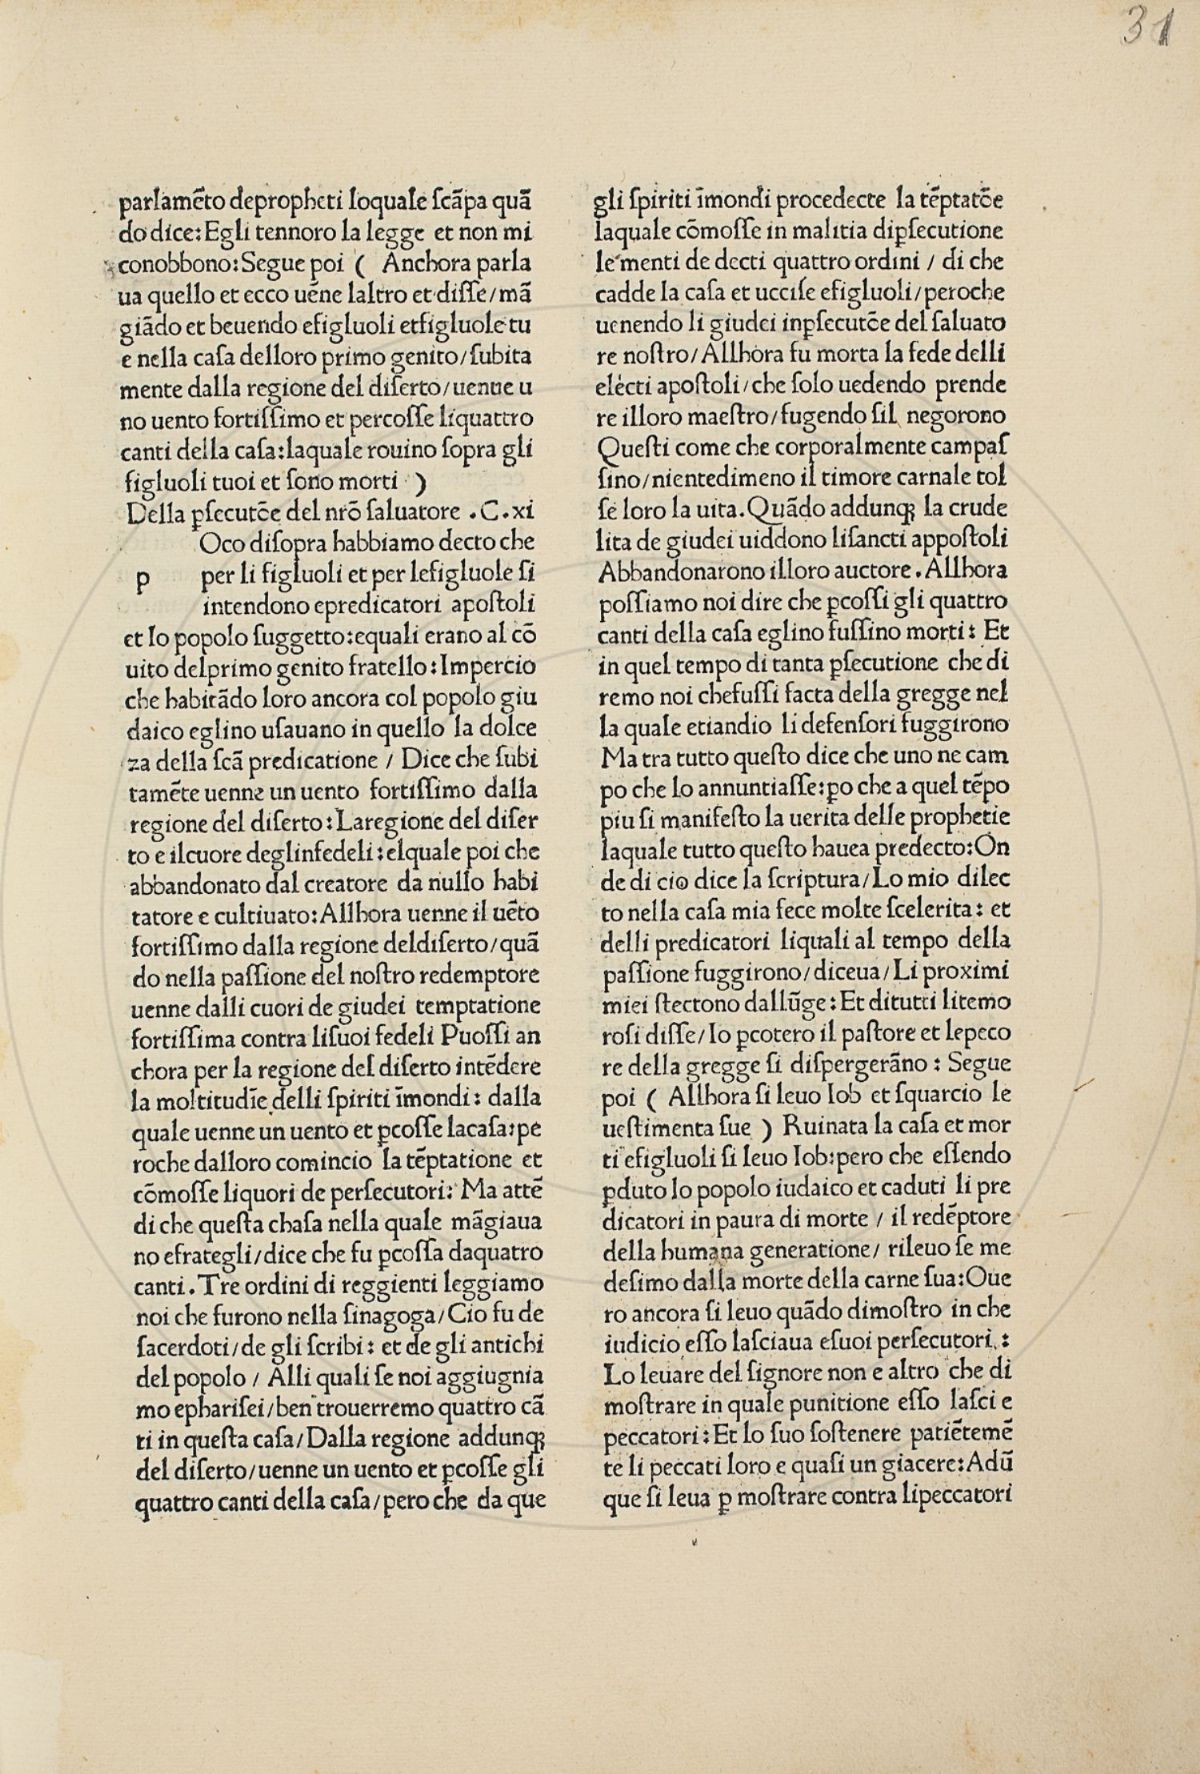 31
parlamēto depropheti loquale ſcāpa quā
do dice: Egli tennoro la legge et non mi
conobbono: Segue poi ( Anchora parla
ua quello et ecco uēne laltro et diſſe/mā
giādo et beuendo efigluoli etfigluole tu
e nella caſa delloro primo genito/ſubita
mente dalla regione del diſerto/uenne u
no uento fortiſſimo et percoſſe liquattro
canti della caſa:laquale rouino ſopra gli
figluoli tuoi et ſono morti )
Della ꝑſecutōe del nrō ſaluatore .C.xi
Oco diſopra habbiamo decto che
p per li figluoli et per lefigluole ſi
intendono epredicatori apoſtoli
et lo popolo ſuggetto:equali erano al cō
uito delprimo genito fratello: Impercio
che habitādo loro ancora col popolo giu
daico eglino uſauano in quello la dolce
za della ſcā predicatione / Dice che ſubi
tamēte uenne un uento fortiſſimo dalla
regione del diſerto: Laregione del diſer
to e ilcuore deglinfedeli:elquale poi che
abbandonato dal creatore da nullo habi
tatore e cultiuato: Allhora uenne il uēto
fortiſſimo dalla regione deldiſerto/quā
do nella paſſione del noſtro redemptore
uenne dalli cuori de giudei temptatione
fortiſſima contra liſuoi fedeli Puoſſi an
chora per la regione del diſerto intēdere
la moltitudīe delli ſpiriti īmondi: dalla
quale uenne un uento et ꝑcoſſe lacaſa:pe
roche dalloro comincio la tēptatione et
cōmoſſe liquori de perſecutori: Ma attē
di che queſta chaſa nella quale māgiaua
no efrategli/dice che fu ꝑcoſſa daquatro
canti. Tre ordini di reggienti leggiamo
noi che furono nella ſinagoga/Cio fu de
ſacerdoti/de gli ſcribi: et de gli antichi
del popolo / Alli quali ſe noi aggiugnia
mo ephariſei/ben trouerremo quattro cā
ti in queſta caſa/Dalla regione addunqꝫ
del diſerto/uenne un uento et ꝑcoſſe gli
quattro canti della caſa/pero che da que
gli ſpiriti īmondi procedecte la tēptatōe
laquale cōmoſſe in malitia diꝑſecutione
le menti de decti quattro ordini / di che
cadde la caſa et ucciſe efigluoli/peroche
uenendo li giudei inꝑſecutōe del ſaluato
re noſtro/Allhora fu morta la fede delli
electi apoſtoli/che ſolo uedendo prende
re illoro maeſtro/fugendo ſil negorono
Queſti come che corporalmente campaſ
ſino/nientedimeno il timore carnale tol
ſe loro la uita. Quādo addunqꝫ la crude
lita de giudei uiddono liſancti appoſtoli
Abbandonarono illoro auctore. Allhora
poſſiamo noi dire che ꝑcoſſi gli quattro
canti della caſa eglino fuſſino morti: Et
in quel tempo di tanta ꝑſecutione che di
remo noi chefuſſi facta della gregge nel
la quale etiandio li defenſori fuggirono
Ma tra tutto queſto dice che uno ne cam
po che lo annuntiaſſe:ꝑo che a quel tēpo
piu ſi manifeſto la uerita delle prophetie
laquale tutto queſto hauea predecto: On
de di cio dice la ſcriptura/Lo mio dilec
to nella caſa mia fece molte ſcelerita: et
delli predicatori liquali al tempo della
paſſione fuggirono/diceua/Li proximi
miei ſtectono dallūge: Et ditutti litemo
roſi diſſe/Io ꝑcotero il paſtore et lepeco
re della gregge ſi diſpergerāno : Segue
poi ( Allhora ſi leuo Iob et ſquarcio le
ueſtimenta ſue ) Ruinata la caſa et mor
ti efigluoli ſi leuo Iob:pero che eſſendo
ꝑduto lo popolo iudaico et caduti li pre
dicatori in paura di morte / il redēptore
della humana generatione/ rileuo ſe me
deſimo dalla morte della carne ſua: Oue
ro ancora ſi leuo quādo dimoſtro in che
iudicio eſſo laſciaua eſuoi perſecutori :
Lo leuare del ſignore non e altro che di
moſtrare in quale punitione eſſo laſci e
peccatori: Et lo ſuo ſoſtenere patiētemē
te li peccati loro e quaſi un giacere: Adū
que ſi leua ꝑ moſtrare contra lipeccatori